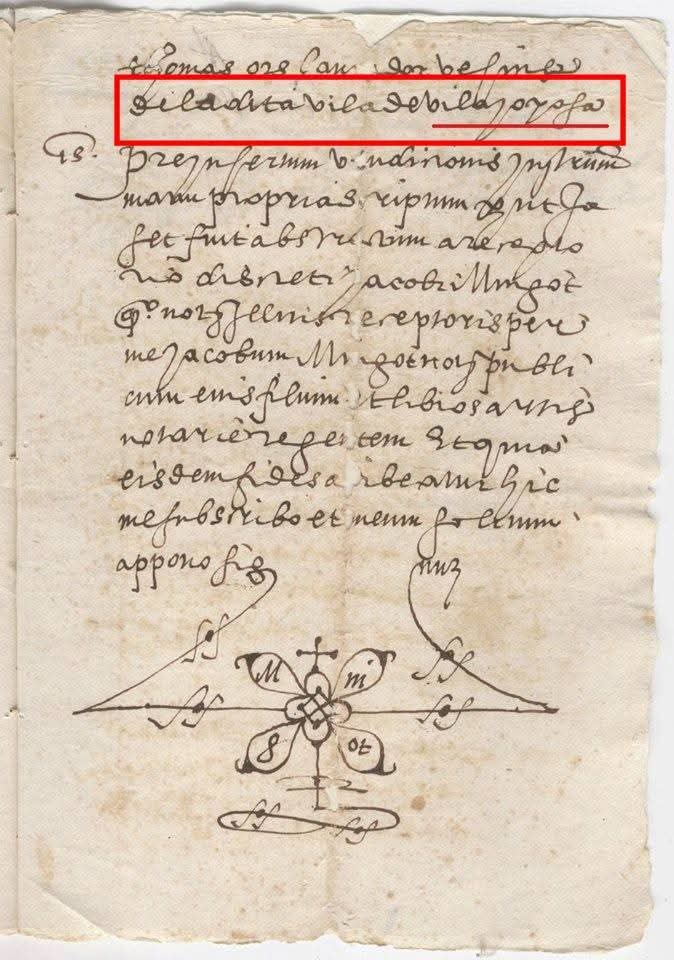 thomas ors laurador vesins
de la dita vila de vila joyosa
preinsertum vendicionis instrum
manu propria scriptum
set fuit abstractum a recepto
discreti Jacobi Mingot
q° not illius receptoris per
me Jacobum Mingot not publi
cum eius filium et libros artis
notarie regentem Et quia
eisdem fides a ibeatur hic
me subscribo et meum solitum
appono sig num
M in
g ot